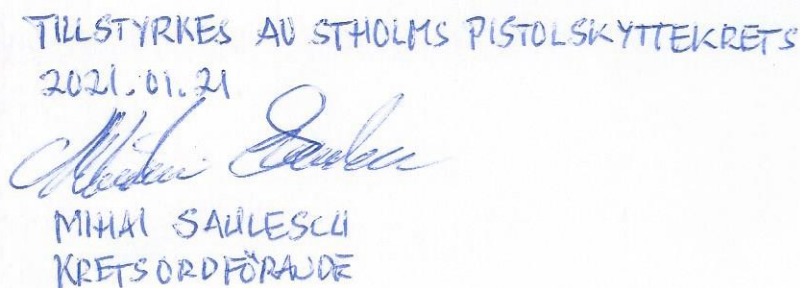 TILLSTYRKES AV STHOLMS PISTOLSKYTTEKRETS
2021.01.21
MIHAI SAULESCU
KRETSORDFÖRANDE